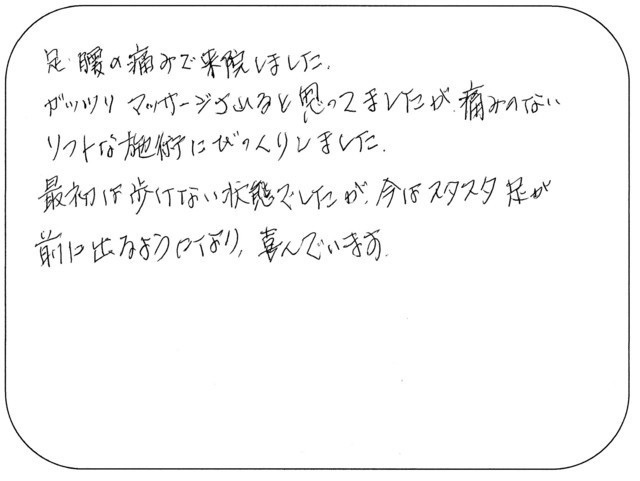 足・腰の痛みで来院しました。
ガッツリマッサージされると思ってましたが、痛みのない
ソフトな施術にびっくりしました。
最初は歩けない状態でしたが、今はスタスタ足が
前に出るようになり、喜んでいます。